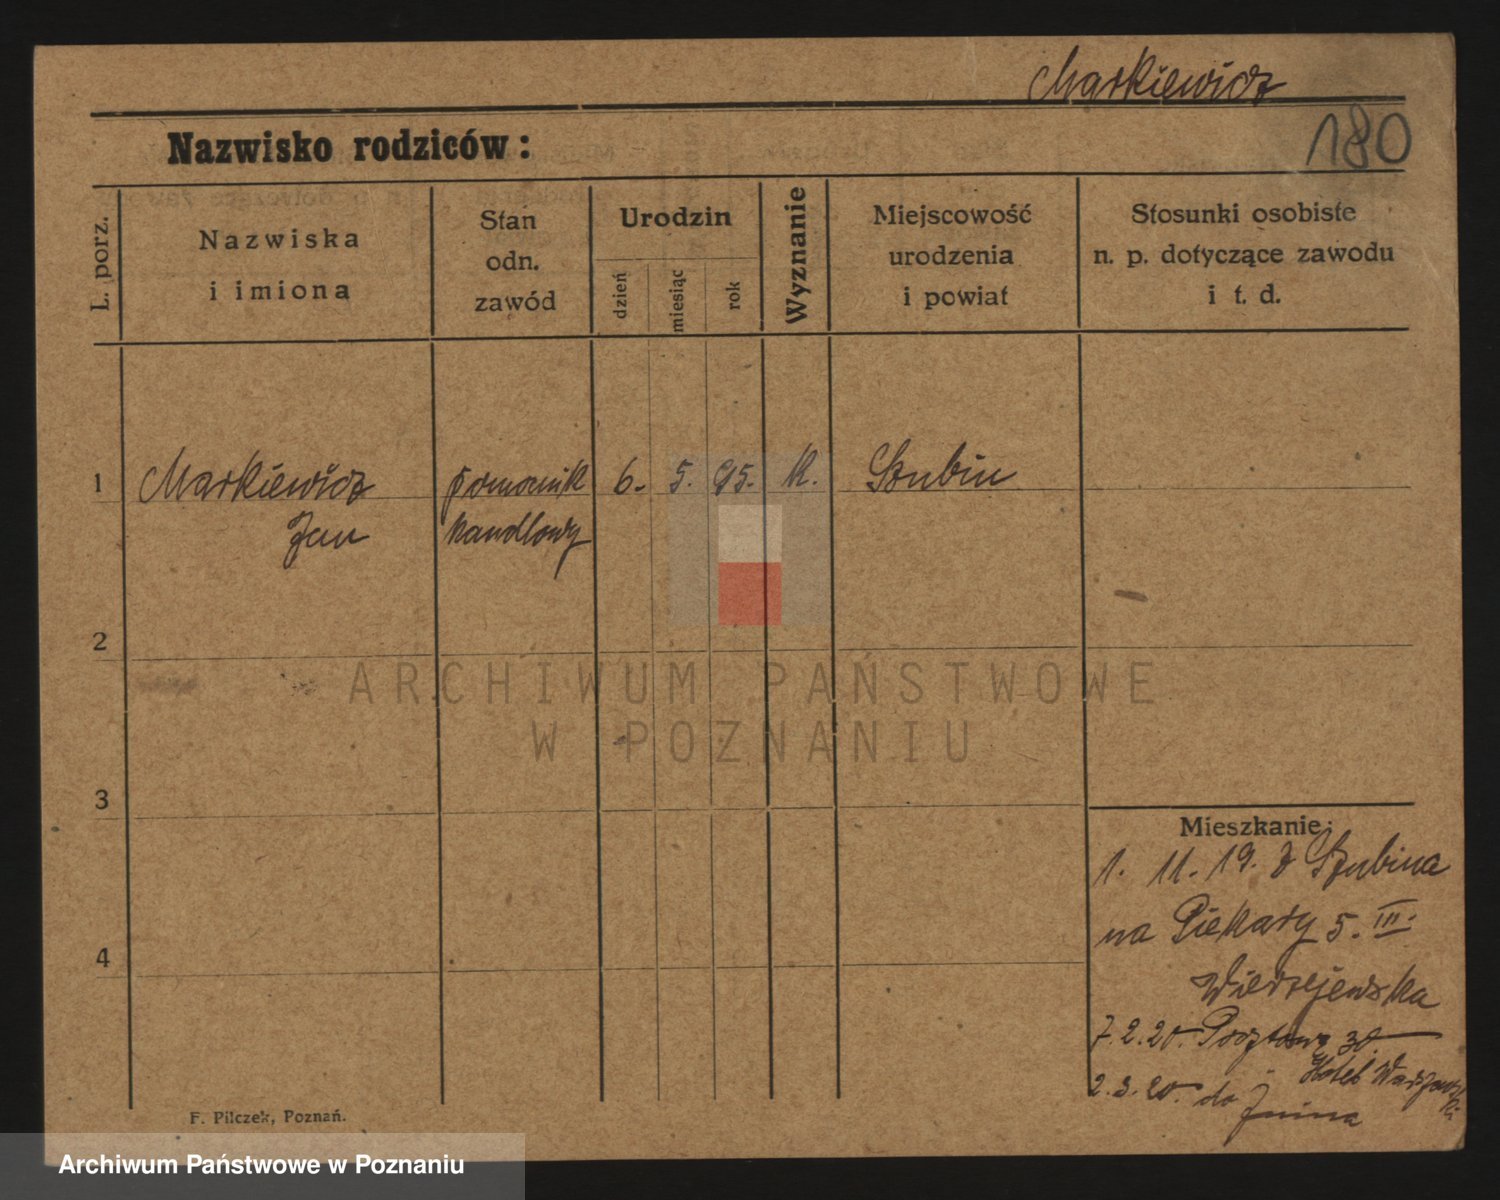 Markiewicz
180
Nazwisko rodziców:
L. porz.
Nazwiska
i imiona
Stan
odn.
zawód
Urodzin
dzień
miesiąc
rok
Wyznanie
Miejscowość
urodzenia
i powiat
Stosunki osobiste
n. p. dotyczące zawodu
i t. d.
1 Markiewicz pomocnik 6. 5. 95. k. Szubin
Jan handlowy
2
3
4
Mieszkanie:
1. 11. 19. z Szubina
na Piekary 5. III.
Wierzejewska
7.2.20. Pocztowa 30.
Hotel Warszawski
2.3.20. do
Żnina
F. Pilczek, Poznań.
ARCHIWUM PAŃSTWOWE
W POZNANIU
Archiwum Państwowe w Poznaniu